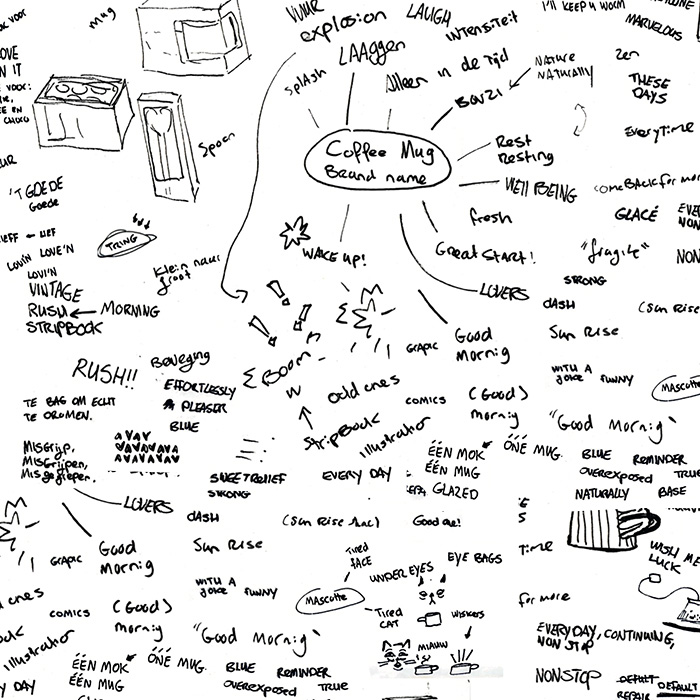 VUUR
explosion
LAUGH
INTENSITEIT
LAAggen
SplASH
Alleen in de Tijd
BONZI
NATURE
NATURALLY
I'll KEEP U WORM
MARVELOUS
Zen
THESE
DAYS
EveryTime
mug
VOOR
LOVE
Spoon
Coffee Mug
Brand name
Rest
Resting
WEll BEING
comeBAck for mor
GLACÉ
fresh
Great START!
"fragile"
STRONG
LOVERS
DASH
(Sun Rise
Sun Rise
WAKE UP!
'T GOEDE
Goede
LIEFF - LIEF
LOVIN LOVE'N
LOVI'N
TRING
Klein naar
groot
VINTAGE
RUSH MORNING
STRIPBOOK
RUSH!!
Beweging
EFFORTLESSLY
PLEASER
BLUE
TE BAG OM ECHT
TE DROMEN.
MISGrijp,
MISGrijpen,
Misgegrepen.
BOOM
GRAPHIC
Good
Mornig
WITH A
JOKE FUNNY
MAScotte
odd ones
COMICS
(Good)
mornig
"Good Mornig"
StripBook
Illustratior
ÉÉN MOK
ÉÉN MUG
ÓNÉ MUG.
BLUE REMINDER
OVEREXPOSED TRUE
NATURALLY BASE
SWEET RELIEF
STRONG
EVERY DAY
GLAZED
LOVERS
DASH
(Sun Rise
Good one!
GRAPHIC
Good
Mornig
Sun Rise
Tired
FACE
UNDER EYES
EYE BAGS
Time
WISH ME
LUCK
WITH A
JOKE FUNNY
MAScotte
Tired
CAT
WISKERS
MIAUW
for more
EVERYDAY, CONTINUING,
NON STOP
COMICS
(Good)
mornig
"Good Mornig"
Illustratior
ÉÉN MOK
ÉÉN MUG
ÓNÉ MUG.
BLUE REMINDER
OVEREXPOSED TRUE
NONSTOP
DEFAULT
REPAIR
DEFAULT